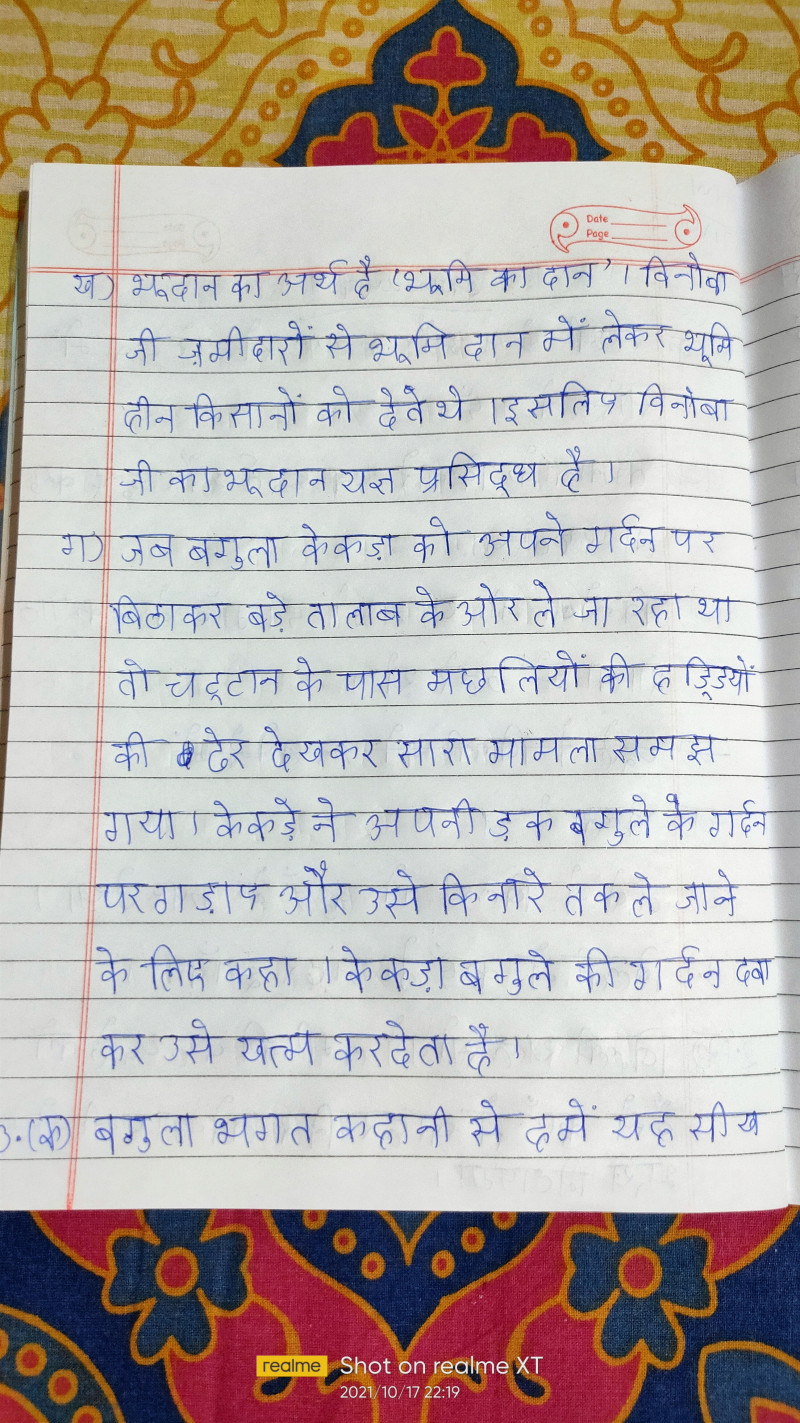 Date
Page
ख) भूदान का अर्थ है 'भूमि का दान'। विनोबा
जी ज़मीदारों से भूमि दान में लेकर भूमि
हीन किसानों को देते थे। इसलिए विनोबा
जी का भूदान यज्ञ प्रसिद्ध है।
ग) जब बगुला केकड़ा को अपने गर्दन पर
बिठाकर बड़े तालाब के ओर ले जा रहा था
तो चट्टान के पास मछलियों की हड्डियों
की ढेर देखकर सारा मामला समझ
गया। केकड़े ने अपनी ड़क बगुले के गर्दन
पर गड़ाए और उसे किनारे तक ले जाने
के लिए कहा। केकड़ा बगुले की गर्दन दबा
कर उसे खत्म कर देता है।
(क) बगुला भगत कहानी से हमें यह सीख
realme Shot on realme XT
2021/10/17 22:19